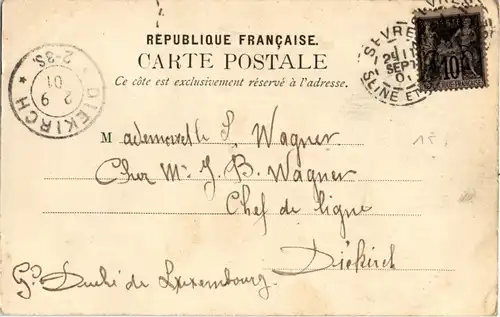 RÉPUBLIQUE FRANÇAISE.
CARTE POSTALE
Ce côté est exclusivement réservé à l'adresse.
SÈVRES
SEPT
SEINE ET
10
2-3S.
2 9
01
DIEKIRCH
Mademoiselle S. Wagner
Chez Mr J. B. Wagner
Chef de ligne
Diékirch
Gd Duché de Luxembourg.
15